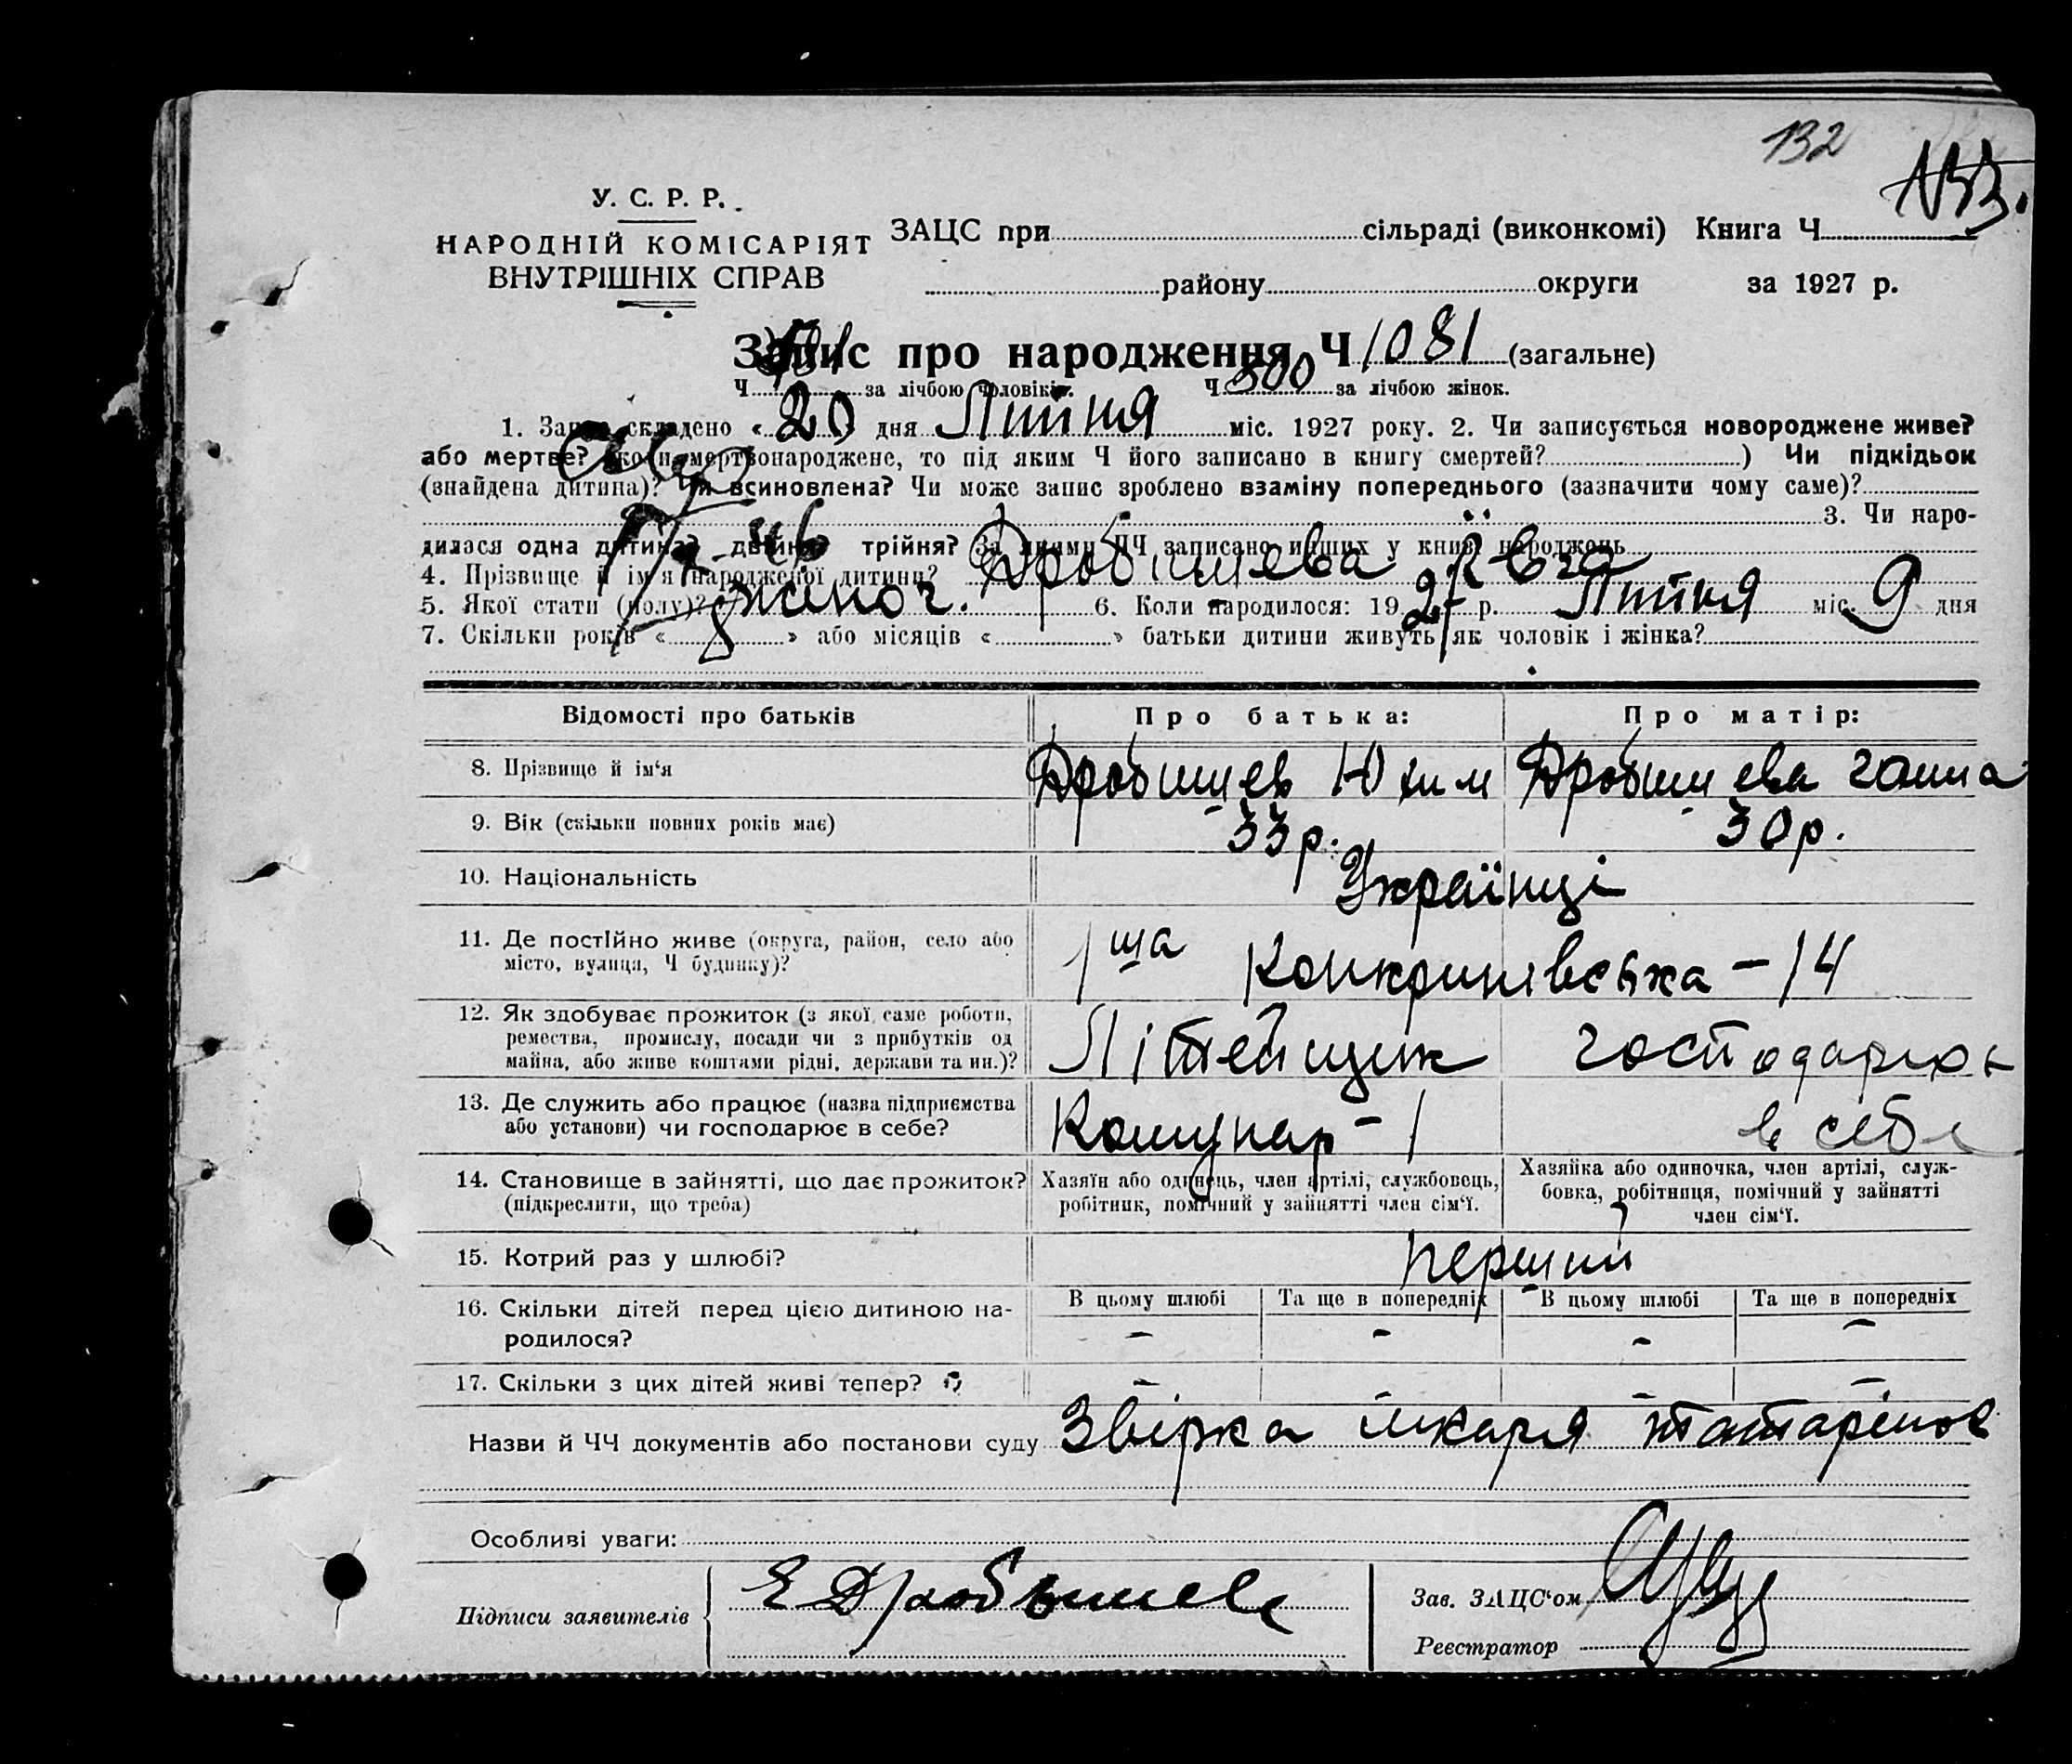 132
У. С. Р. Р.
НАРОДНІЙ КОМІСАРІЯТ
ВНУТРІШНІХ СПРАВ
ЗАЦС при сільраді (виконкомі) Книга Ч
району округи за 1927 р.
Запис про народження Ч 1081 (загальне)
Ч за лічбою чоловіків. Ч 500 за лічбою жінок.
1. Запис складено « 20 » дня Липня міс. 1927 року. 2. Чи записується новороджене живе?
або мертве? (коли мертвонароджене, то під яким Ч його записано в книгу смертей? ) Чи підкідьок
(знайдена дитина)? Чи всиновлена? Чи може запис зроблено взаміну попереднього (зазначити чому саме)?
3. Чи наро-
дилася одна дитина? двійня? трійня? За якими ЧЧ записано инших у книзі народжень
4. Прізвище й ім'я народженої дитини? Дробишева Ївга
5. Якої статі (полу)? жиноч. 6. Коли народилося: 1927 р. Липня міс. 9 дня
7. Скільки років « » або місяців « » батьки дитини живуть як чоловік і жінка?
Відомості про батьків Про батька: Про матір:
8. Прізвище й ім'я Дробишев Юхим Дробишева Ганна
9. Вік (скільки повних років має) 33 р. 30 р.
10. Національність Українці
11. Де постійно живе (округа, район, село або
місто, вулиця, Ч будинку)? 1ша Конкринівська - 14
12. Як здобуває прожиток (з якої саме роботи,
ремества, промислу, посади чи з прибутків од
майна, або живе коштами рідні, держави та ин.)? Літейщик господарює
13. Де служить або працює (назва підприємства
або установи) чи господарює в себе? Комунар - 1 в себе
14. Становище в зайнятті, що дає прожиток?
(підкреслити, що треба)
Хазяїн або одинець, член артілі, службовець,
робітник, помічний у зайнятті член сім'ї.
Хазяйка або одиночка, член артілі, служ-
бовка, робітниця, помічний у зайнятті
член сім'ї.
15. Котрий раз у шлюбі? перший
16. Скільки дітей перед цією дитиною на-
родилося?
В цьому шлюбі Та ще в попередніх В цьому шлюбі Та ще в попередніх
- - - -
17. Скільки з цих дітей живі тепер? - - -
Назви й ЧЧ документів або постанови суду Звірка лікаря Татарінов
Особливі уваги:
Підписи заявителів Е Дробышев
Зав. ЗАЦС'ом
Реєстратор